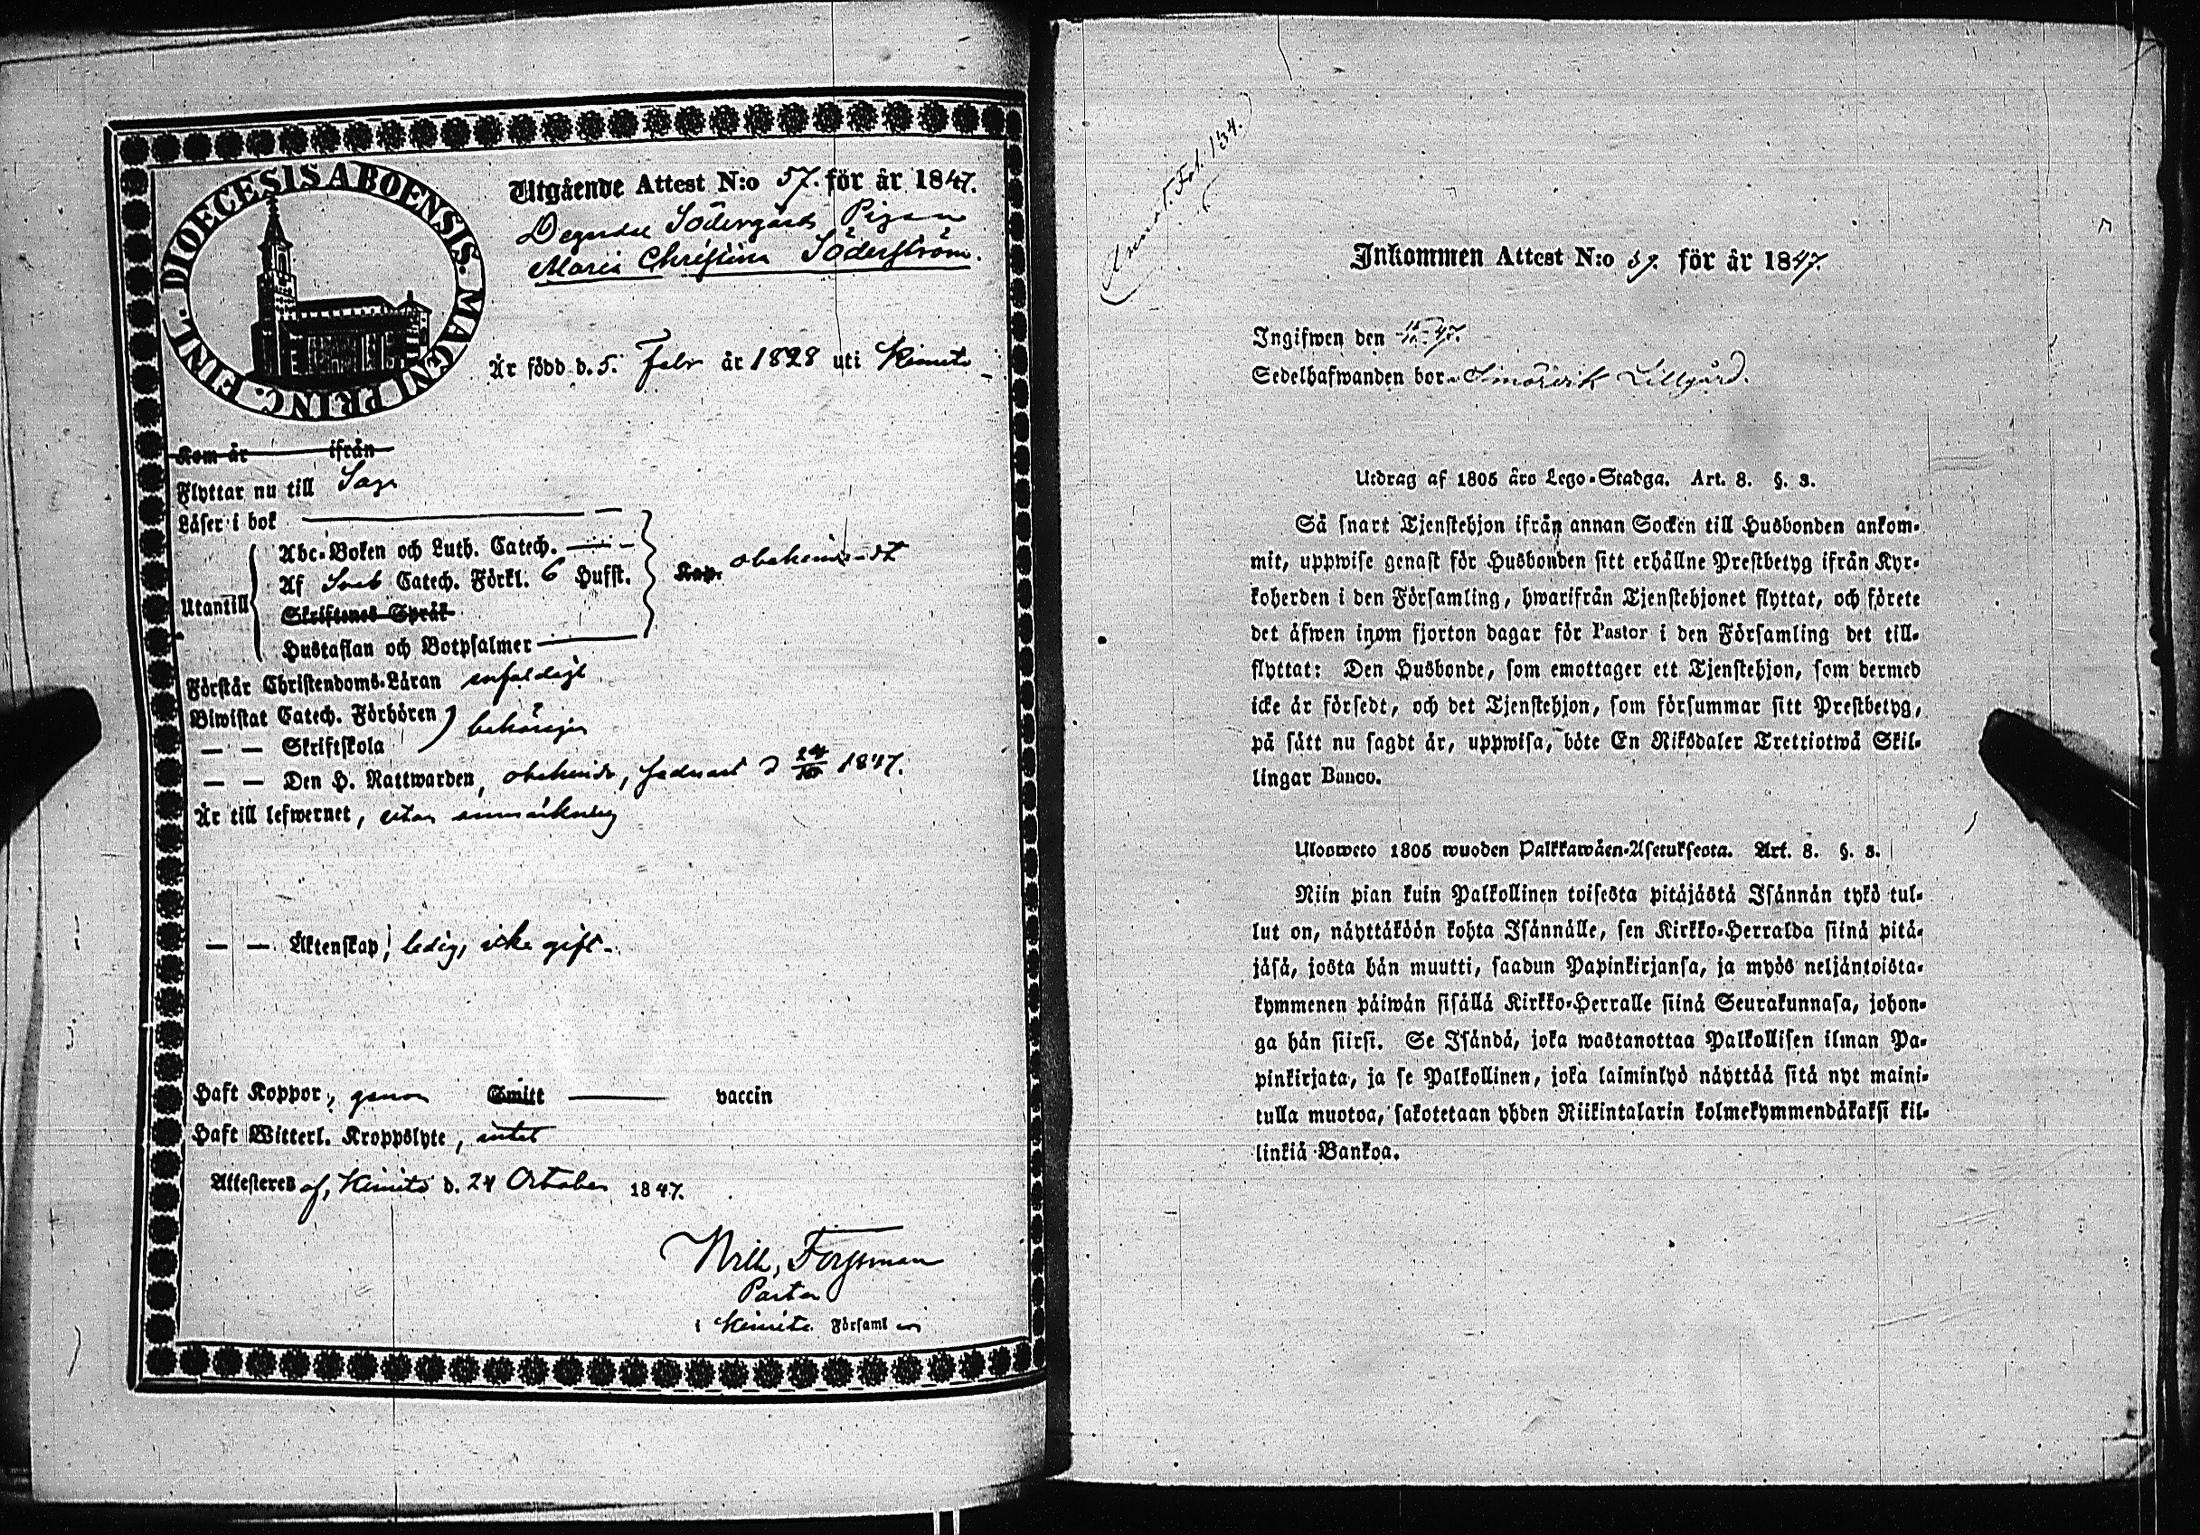 DIOECESIS ABOENSIS. MAGNI PRINC. FINL.
Utgående Attest N:o 57. för år 1847.
Södergårds Pigan
Maria Christina Söderström.
Är född d. 5. Febr år 1828 uti Kimito
Kom år ifrån
Flyttar nu till Sagu
Läser i bok
Utantill
Abc-Boken och Luth. Catech.
Af Sveb Catech. Förkl. 6 Hufst.
Skriftenes Språk
Hustaflan och Botpsalmer
Kap.
Förstår Christendoms-Läran enfaldigt
Biwistat Catech. Förhören
— — Skriftskola
behörigen
— — Den H. Nattwarden, senast d 24/10 1847.
Är till lefwernet, utan anmärkning
— — Äktenskap, ledig, icke gift.
Haft Koppor, genom Smitt vaccin
Haft Witterl. Kroppslyte, intet
Attesteras af, Kimito d. 24 October 1847.
Wilh. Forssman
Pastor
i Kimito Församl
Fol. 134.
Inkommen Attest N:o 57. för år 1847.
Ingifwen den
Sedelhafwanden bor Lillgård.
Utdrag af 1805 års Lego-Stadga. Art. 8. §. 3.
Så snart Tjenstehjon ifrån annan Socken till Husbonden ankom-
mit, uppwise genast för Husbonden sitt erhållne Prestbetyg ifrån Kyr-
koherden i den Församling, hwarifrån Tjenstehjonet flyttat, och förete
det äfwen inom fjorton dagar för Pastor i den Församling det till-
flyttat: Den Husbonde, som emottager ett Tjenstehjon, som dermed
icke är försedt, och det Tjenstehjon, som försummar sitt Prestbetyg,
på sätt nu sagdt är, uppwisa, böte En Riksdaler Trettiotwå Skil-
lingar Banco.
Ulosweto 1805 wuoden Palkkawäen-Asetuksesta. Art. 8. §. 3.
Niin pian kuin Palkollinen toisesta pitäjästä Isännän tykö tul-
lut on, näyttäköön kohta Isännälle, sen Kirkko-Herralda siinä pitä-
jäsä, josta hän muutti, saadun Papinkirjansa, ja myös neljäntoista-
kymmenen päiwän sisällä Kirkko-Herralle siinä Seurakunnasa, johon-
ga hän siirsi. Se Isändä, joka wastanottaa Palkollisen ilman Pa-
pinkirjata, ja se Palkollinen, joka laiminlyö näyttää sitä nyt maini-
tulla muotoa, sakotetaan yhden Riikintalarin kolmekymmendäkaksi kil-
linkiä Bankoa.